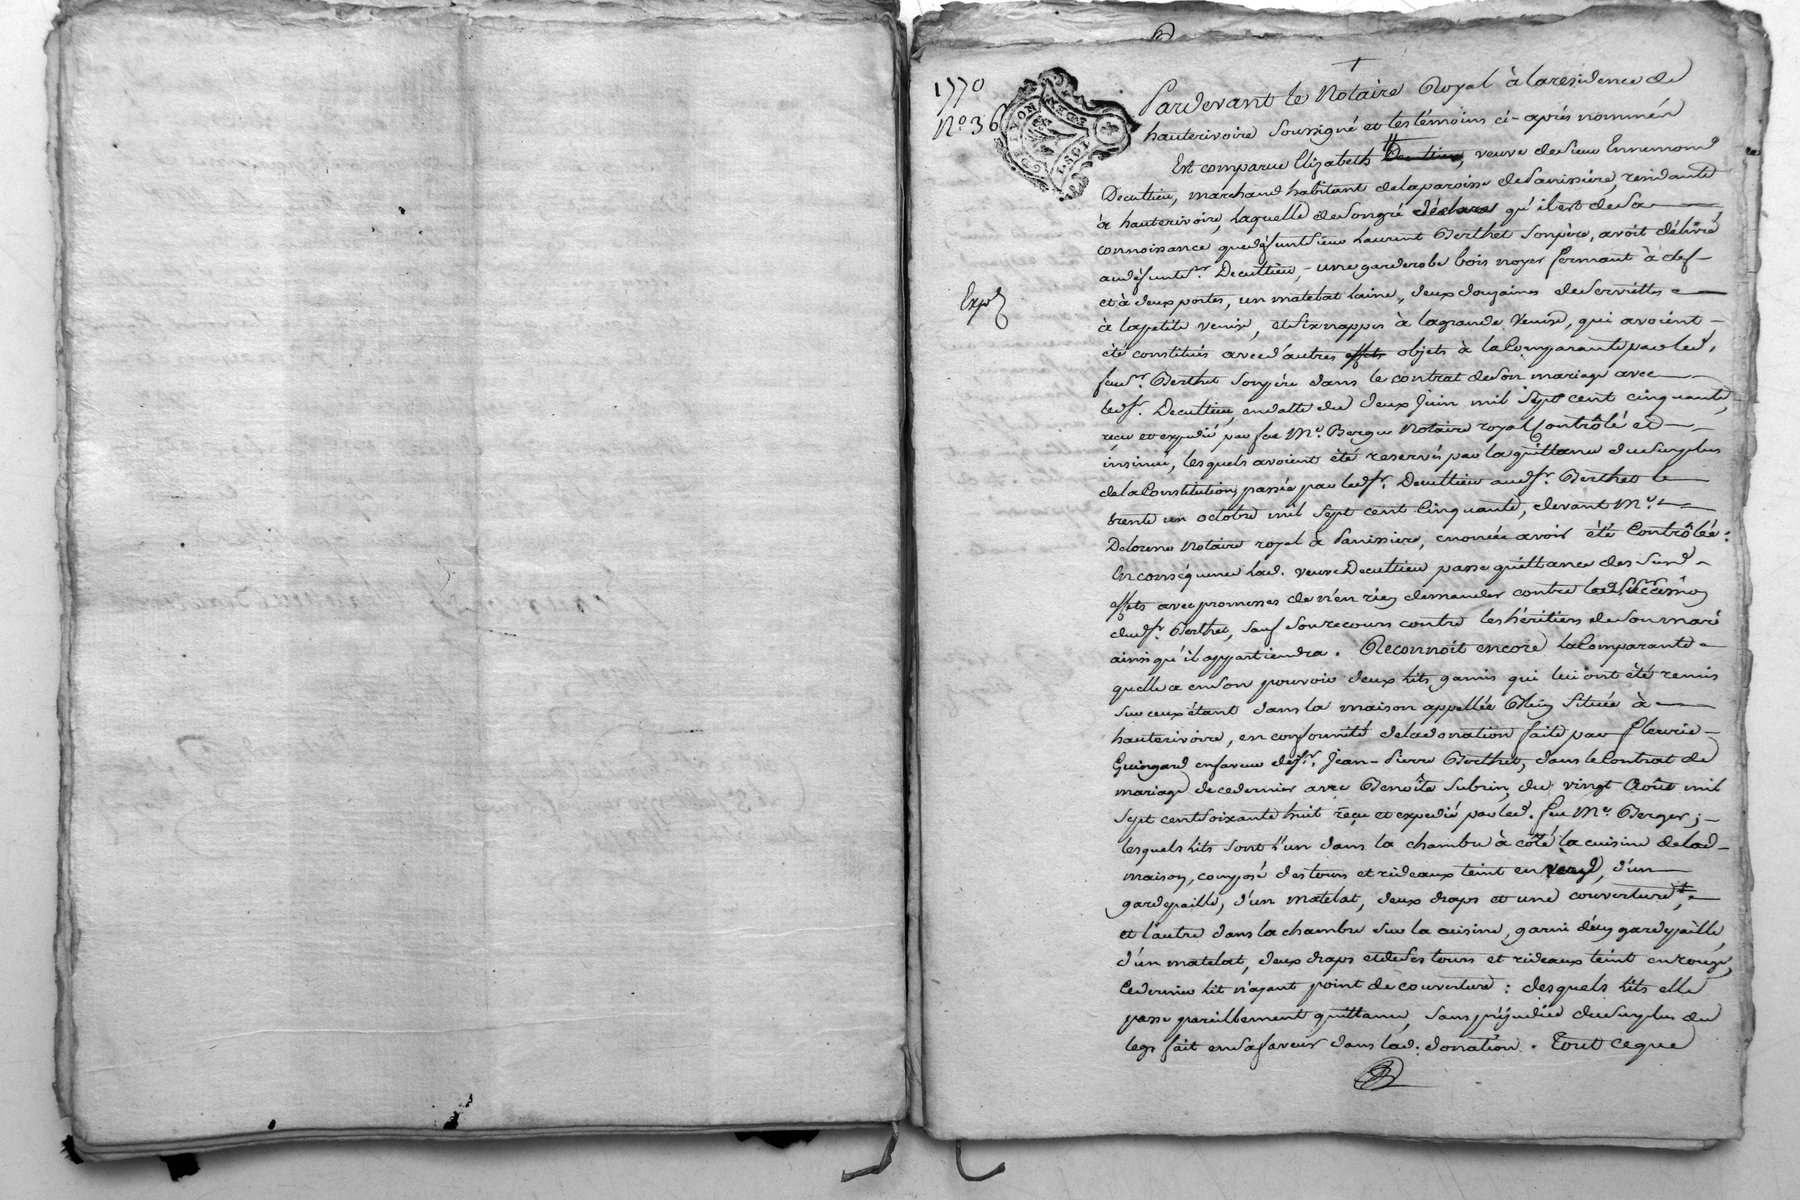 1770
N.o 36
Expd
Pardevant le Notaire Royal à la residence de
hauterivoire Soussigné et les témoins ci-après nommés
Est comparue Elizabeth veuve de sieur Ennemond
Decultieu, marchand habitant de la paroisse de Panissiere, residante
à hauterivoire, laquelle de son gré déclare qu'il est de sa
connoissance que défunt sieur Laurent Berthet son père, avoit délivré
au défunt sr. Decultieu, une garderobe bois noyer fermant à clef
et à deux portes, un matelat laine, deux douzaines de serviettes
à la petite venise, et six nappes à la grande Venise, qui avoient
été constitués avec d'autres effets objets à la Comparante par led.
feu sr. Berthet son père dans le contrat de son mariage avec
led sr. Decultieu, en datte du deux Juin mil Sept cent cinquante,
reçu et expedié par feu Me. Berger Notaire royal Contrôlé et
insinué, lesquels avoient été reservés par la quittance du surplus
de la Constitution, passée par led sr. Decultieu aud sr. Berthet le
trente un octobre mil Sept cent Cinquante, devant Me.
Delorme Notaire royal à Panissiere, énoncée avoir été Contrôlée:
En conséquence lad. veuve Decultieu passe quittance des Susd.
effets avec promesses de n'en rien demander contre la Succession
dud sr. Berthet, sauf son recours contre les héritiers de son mari
ainsi qu'il appartiendra. Reconnoit encore la Comparante
qu'elle a en son pouvoir deux lits garnis qui lui ont été remis
sur ceux étant dans la maison appellée Située à
hauterivoire, en conformité de la donation faite par fleurie
Guingard en faveur de sr. Jean-Pierre Berthet, dans le Contrat de
mariage de ce dernier avec Benoîte Subrin, du vingt Août mil
Sept cent Soixante huit reçu et expedié par led. feu Me. Berger;
lesquels lits sont l'un dans la chambre à côté la cuisine de lad.
maison, composé des tours et rideaux teint en verd, d'un
gardepaille, d'un matelat, deux draps et une couverture,
et l'autre dans la chambre sur la cuisine, garni d'un gardepaille,
d'un matelat, deux draps et de ses tours et rideaux teint en rouge,
Ce dernier lit n'ayant point de couverture: desquels lits elle
passe pareillement quittance, sans préjudice du surplus du
legs fait en sa faveur dans lad. donation. Tout ce que